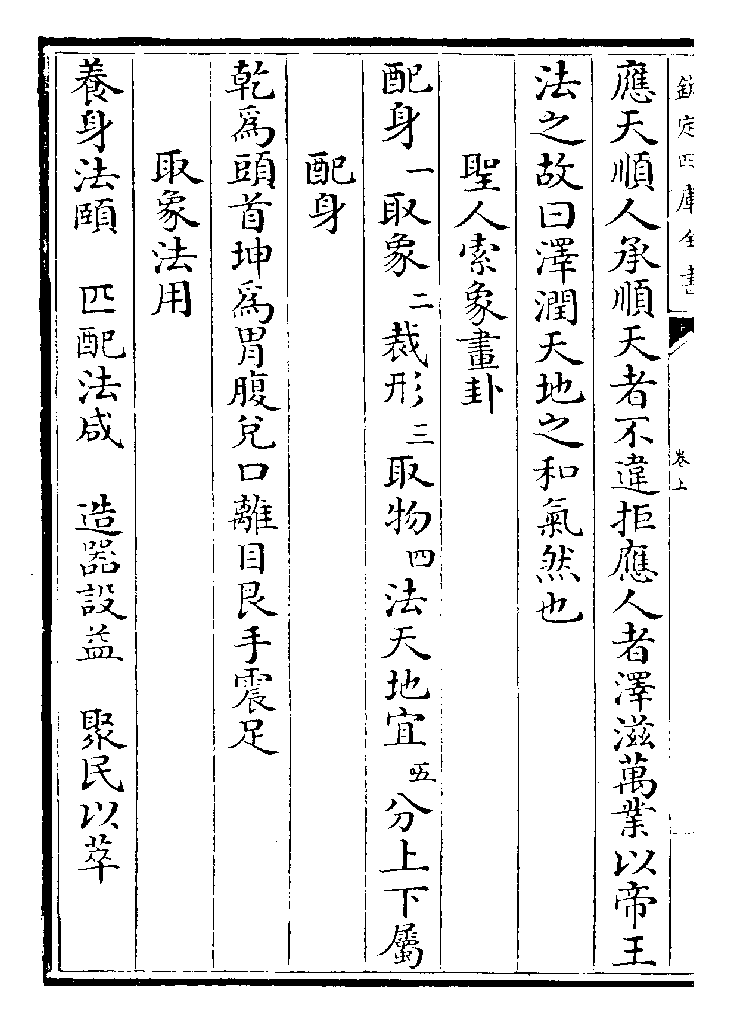 欽定四庫全書
卷上
應天順人承順天者不違拒應人者澤滋萬業以帝王
法之故曰澤潤天地之和氣然也
聖人索象畫卦
配身一取象二裁形三取物四法天地宜五分上下屬
配身
乾為頭首坤為胃腹兌口離目艮手震足
取象法用
養身法頤 匹配法咸 造器設益 聚民以萃